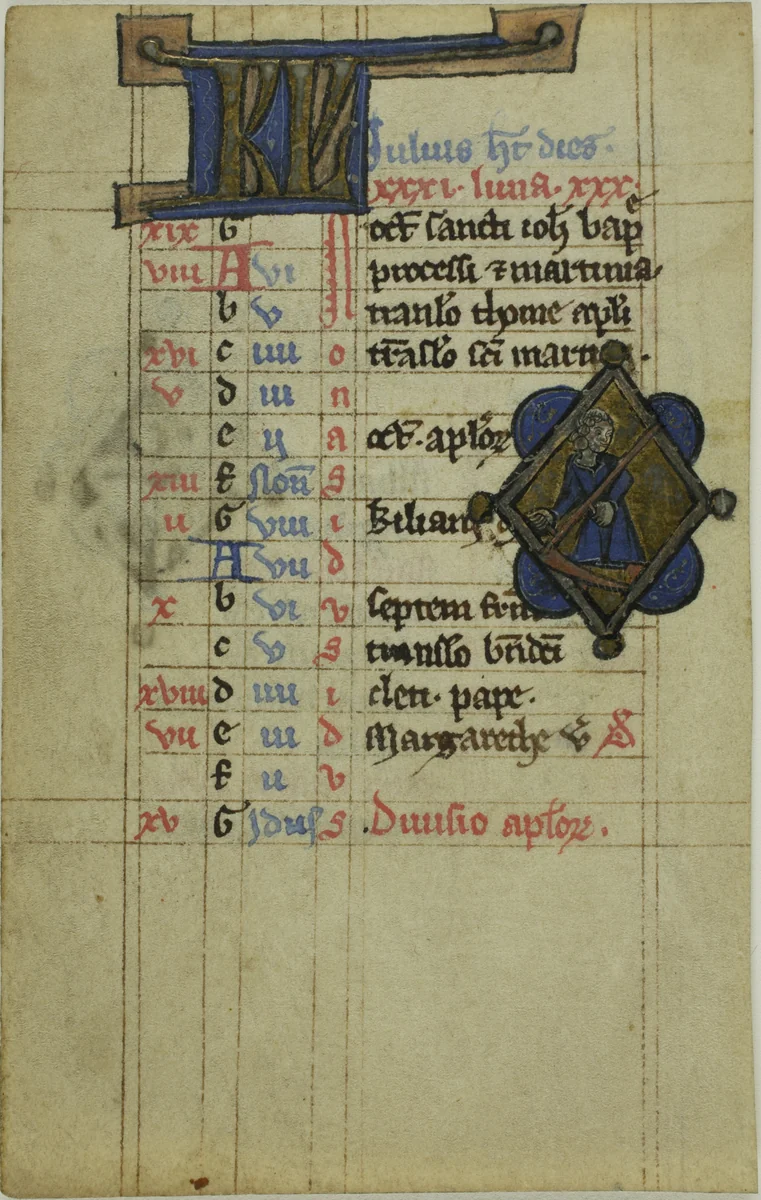 KL
Iulius hr dies.
xxxi. luna. xxx.
xix G oct sancti ioh bapte
viii A vi processi ⁊ martinia
b v N translo thome apli
xvi c iiii o traslo sci
v d iii n
e ij a oct. aplorꝝ
xiii f Non s
ii G viii i kiliani
A vii d
x b vi v septem frm
c v s translo bndci
xviii d iiii i cleti. pape.
vii e iii d Margarethe v S
f ii v
xv G Idus s .Diuisio aplorꝝ.